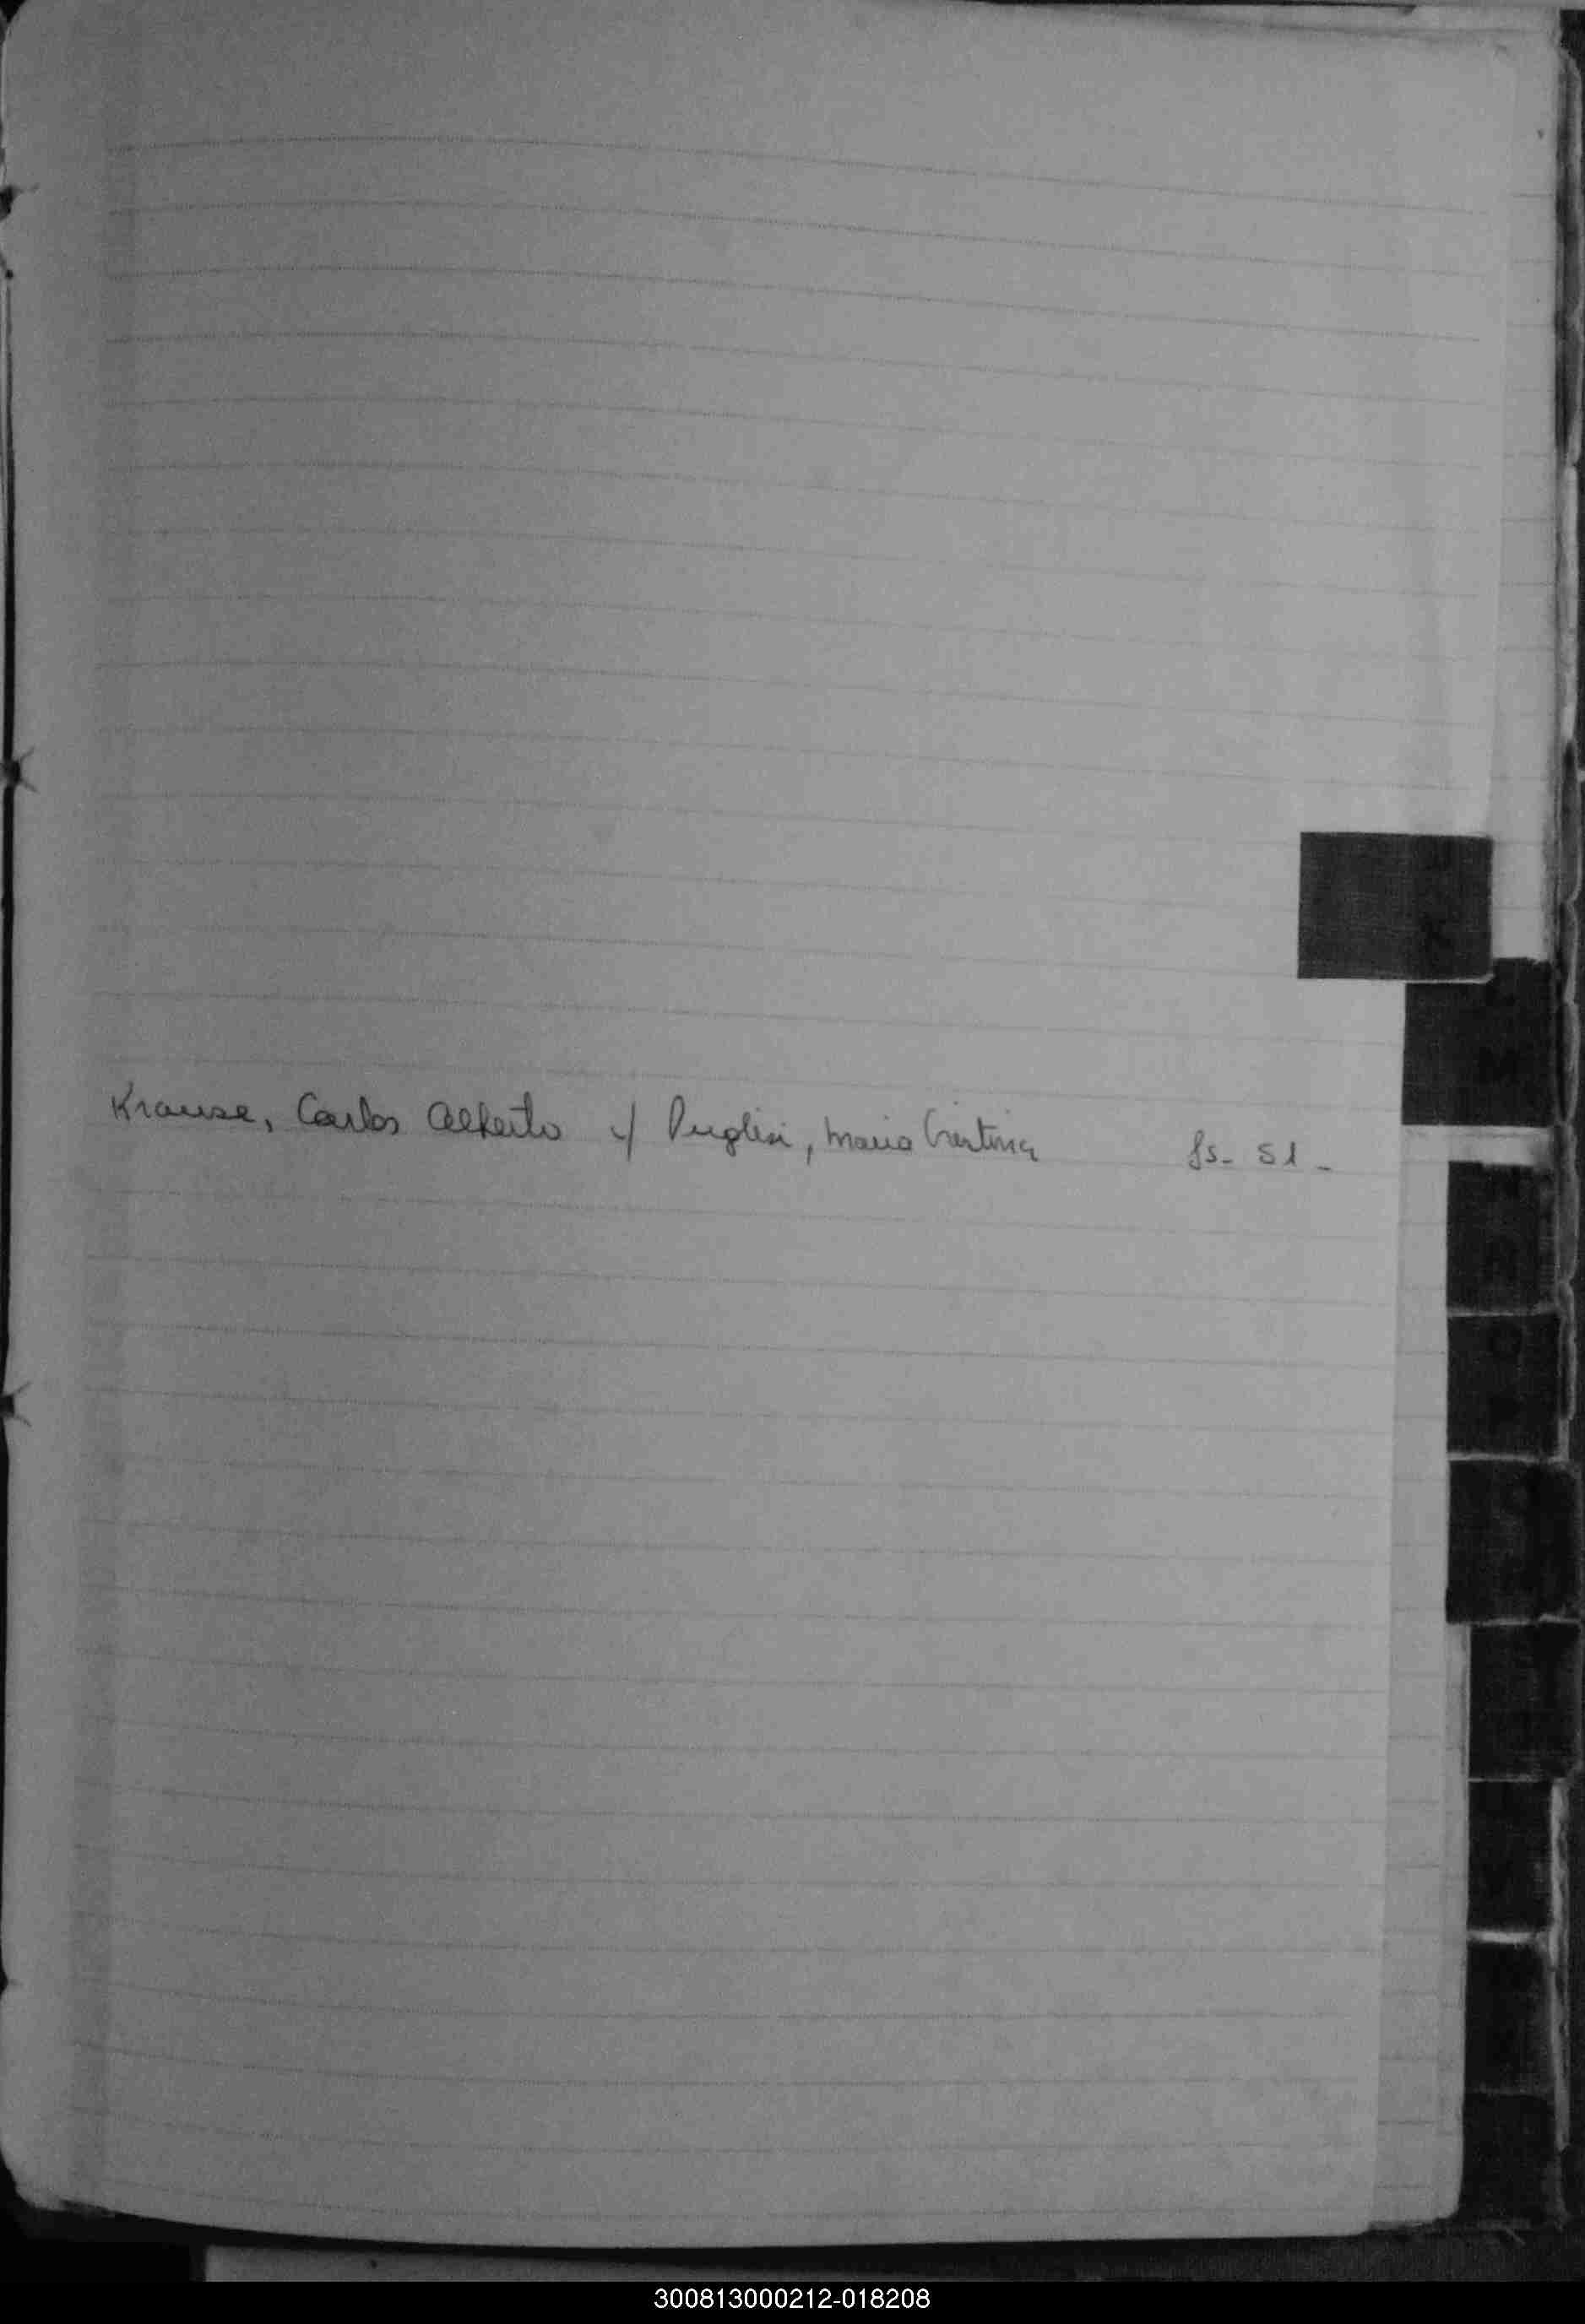 K
M
Krause, Carlos Alberto c/ Puglisi, Maria Cristina fs- 51 -
O
300813000212-018208